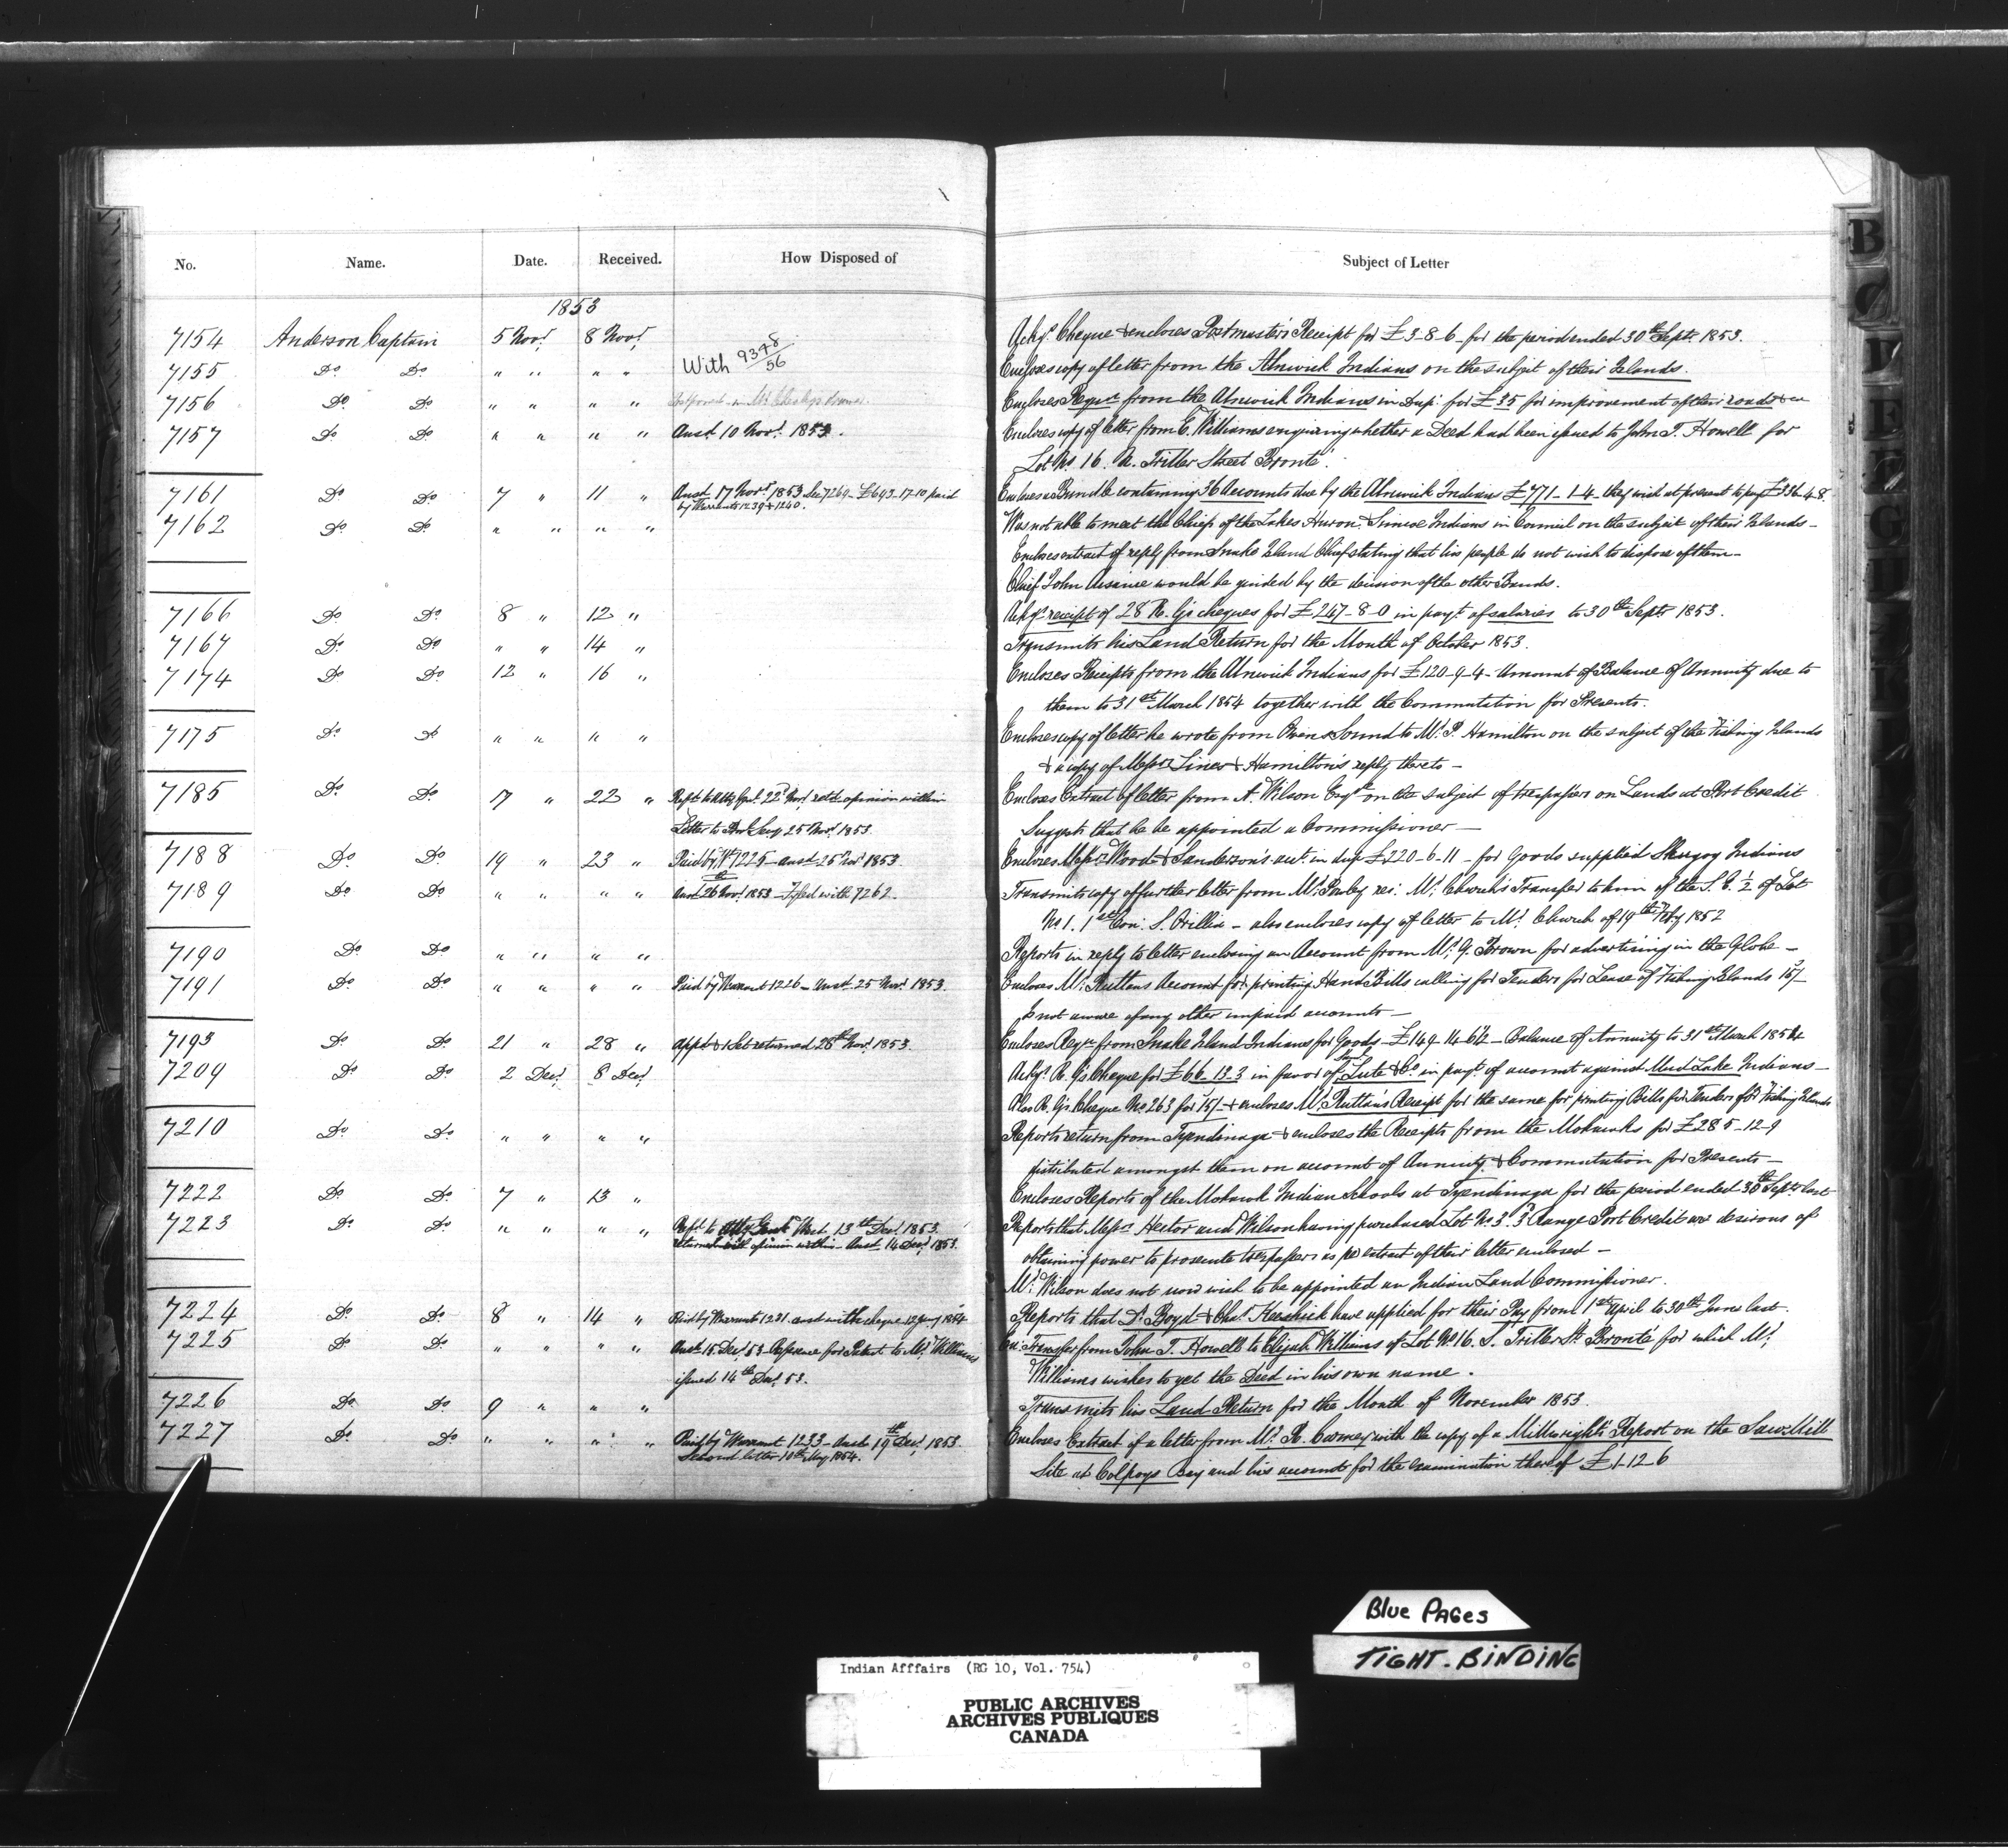 No. Name. Date. Received. How Disposed of Subject of Letter
1853
7154 Anderson Captain 5 Novr. 8 Novr. Ackgs. Cheque & encloses Postmaster's Receipt for £3-8-6- for the period ended 30th Septr. 1853.
7155 Do. Do. " " " " With 9378/56 Encloses copy of letter from the Alnwick Indians on the subject of their Islands.
7156 Do. Do. " " " " Encloses Requn. from the Alnwick Indians in Dup: for £35 for improvement of their roads &c
7157 Do. Do. " " " " Ansd. 10 Novr. 1853. Encloses copy of letter from E. Williams enquiring whether a Deed had been issued to John T. Howell for
Lot No. 16. Triller Street Bronte.
7161 Do. Do. 7 " 11 " Ansd. 17 Novr. 1853 See 7269- £643-17-10 paid Encloses a Bundle containing 36 Accounts due by the Alnwick Indians £771-1-4. they wish at present to pay £336-4-8
by Warrants 1239 & 1240.
7162 Do. Do. " " " " Was not able to meet the Chiefs of the Lakes Huron & Simcoe Indians in Council on the subject of their Islands-
Encloses extract of reply from Snake Island Chief stating that his people do not wish to dispose of them-
Chief John Aisance would be guided by the decision of the other Bands.
7166 Do. Do. 8 " 12 " Ackgs. receipt of 28 R. G's cheques for £247-8-0 in payt. of salaries to 30th Septr. 1853.
7167 Do. Do. " " 14 " Transmits his Land Return for the Month of October 1853.
7174 Do. Do. 12 " 16 " Encloses Receipts from the Alnwick Indians for £120-9-4- Amount of Balance of Annuity due to
them to 31st March 1854 together with the Commutation for Presents.
7175 Do. Do. " " " " Encloses copy of letter he wrote from Owen Sound to Mr. P. Hamilton on the subject of the Fishing Islands
& a copy of Messrs Hamilton's reply thereto-
7185 Do. Do. 17 " 22 " Novr. retd. opinion within Encloses Extract of letter from A. Wilson Esqre. on the subject of trespassers on Lands at Port Credit
Letter to 25 Novr. 1853. Suggests that he be appointed a Commissioner-
7188 Do. Do. 19 " 23 " Paid by Wt. 1225- ansd. 25 Novr. 1853. Encloses Messrs. Wood & Sanderson's acct. in dup £220-6-11- for Goods supplied Skugog Indians
7189 Do. Do. " " " " Ansd. 26 Novr. 1853- Filed with 7262. Transmits copy of further letter from Mr. res: Mr. Church's Transfer to him of the S. E. ½ of Lot
No. 1. 1st Con: S. Orillia- also encloses copy of letter to Mr. Church of 19th Feby 1852
7190 Do. Do. " " " " Reports in reply to letter enclosing an Account from Mr. G. Brown for advertising in the Globe-
7191 Do. Do. " " " " Paid by Warrant 1226- Ansd. 25 Novr. 1853. Encloses Mr. Ruttans Account for printing Hand Bills calling for Tenders for Lease of Fishing Islands 15/-
Is not aware of any other unpaid accounts-
7193 Do. Do. 21 " 28 " Appd. & 1 Set returned 28th Novr. 1853. Encloses Requn. from Snake Island Indians for Goods- £149-14-6½- Balance of Annuity to 31st March 1854
7209 Do. Do. 2 Decr. 8 Decr. Ackgs. R. G's Cheque for £66-13-3 in favor of & Co. in payt. of account against Mud Lake Indians-
Also R. G's Cheque No. 263 for 15/- & encloses Mr. Ruttan's Receipt for the same for printing Bills for Tenders for Fishing Islands
7210 Do. Do. " " " " Reports return from Tyendinaga & encloses the Receipts from the Mohawks for £285-12-9
distributed amongst them on account of Annuity & Commutation for Presents-
7222 Do. Do. 7 " 13 " Encloses Reports of the Mohawk Indian Schools at Tyendinaga for the period ended 30th Septr. last
7223 Do. Do. " " " " Refd. to Atty Genl West. 13th Decr. 1853. Reports that Messrs. Hector and Wilson having purchased Lot No. 3. 3d Range Port Credit are desirous of
returned with opinion within- Ansd. 14 Decr. 1853. obtaining power to prosecute trespassers as per extract of their letter enclosed-
Mr. Wilson does not now wish to be appointed an Indian Land Commissioner.
7224 Do. Do. 8 " 14 " Paid by Warrant 1231 ansd. with cheque 12 Jany 1854 Reports that D. Boyd & Chas. Keeshick have applied for their Pay from 1st April to 30th June last.
7225 Do. Do. " " " " Ansd. 15 Decr. 53- Reference for Patent to Mr. Williams En: Transfer from John T. Howell to Elijah Williams of Lot No. 16. S. Triller St. Bronté for which Mr.
issued 14th Decr. 53. Williams wishes to get the Deed in his own name.
7226 Do. Do. 9 " " " Transmits his Land Return for the Month of November 1853.
7227 Do. Do. " " " " Paid by Warrant 1233- Ansd. 19th Decr. 1853. Encloses Extract of a letter from Mr. R. Carney with the copy of a Millwright's Report on the Saw Mill
Second letter 10th May 1854. Site at Colpoys Bay and his account for the examination thereof £1-12-6
B
C
D
E
F
G
Blue PAGes
TIGHT-BINDING
Indian Afffairs (RG 10, Vol. 754)
PUBLIC ARCHIVES
ARCHIVES PUBLIQUES
CANADA